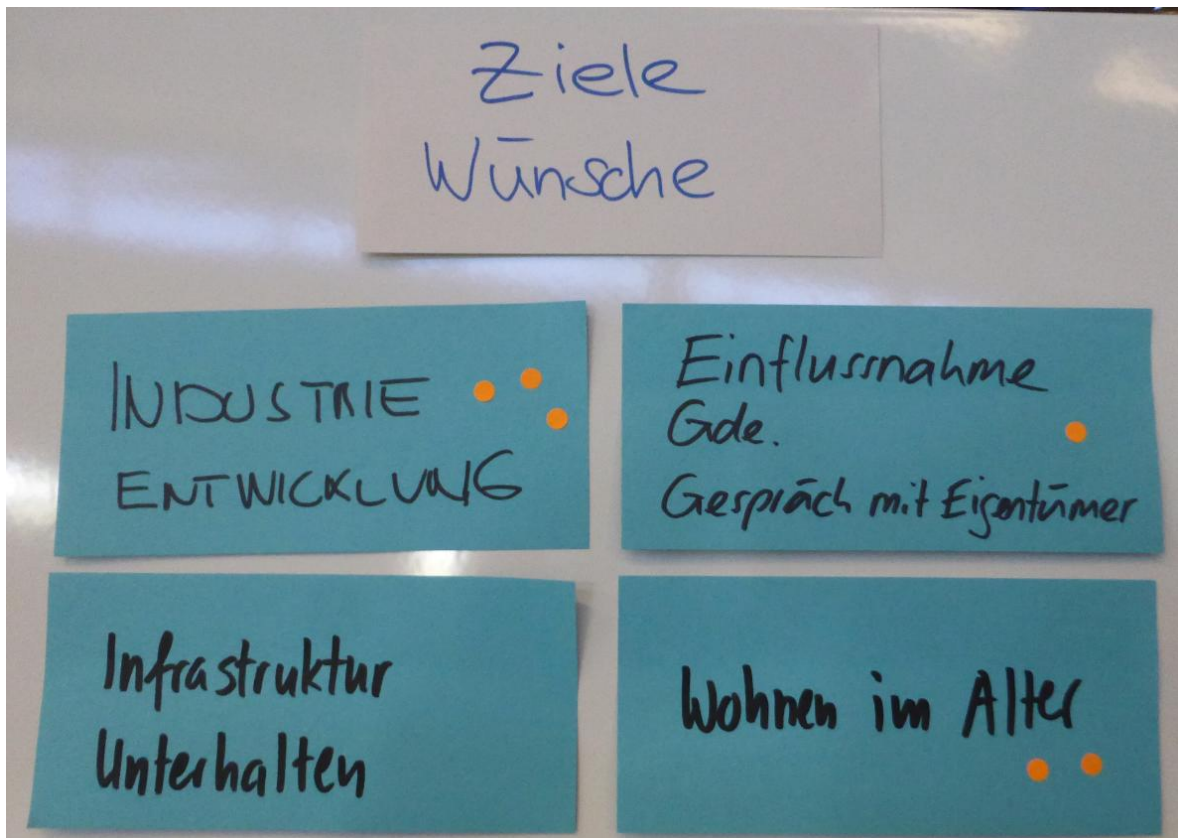 Ziele
Wünsche
INDUSTRIE
ENTWICKLUNG
Einflussnahme
Gde.
Gespräch mit Eigentümer
Infrastruktur
Unterhalten
Wohnen im Alter